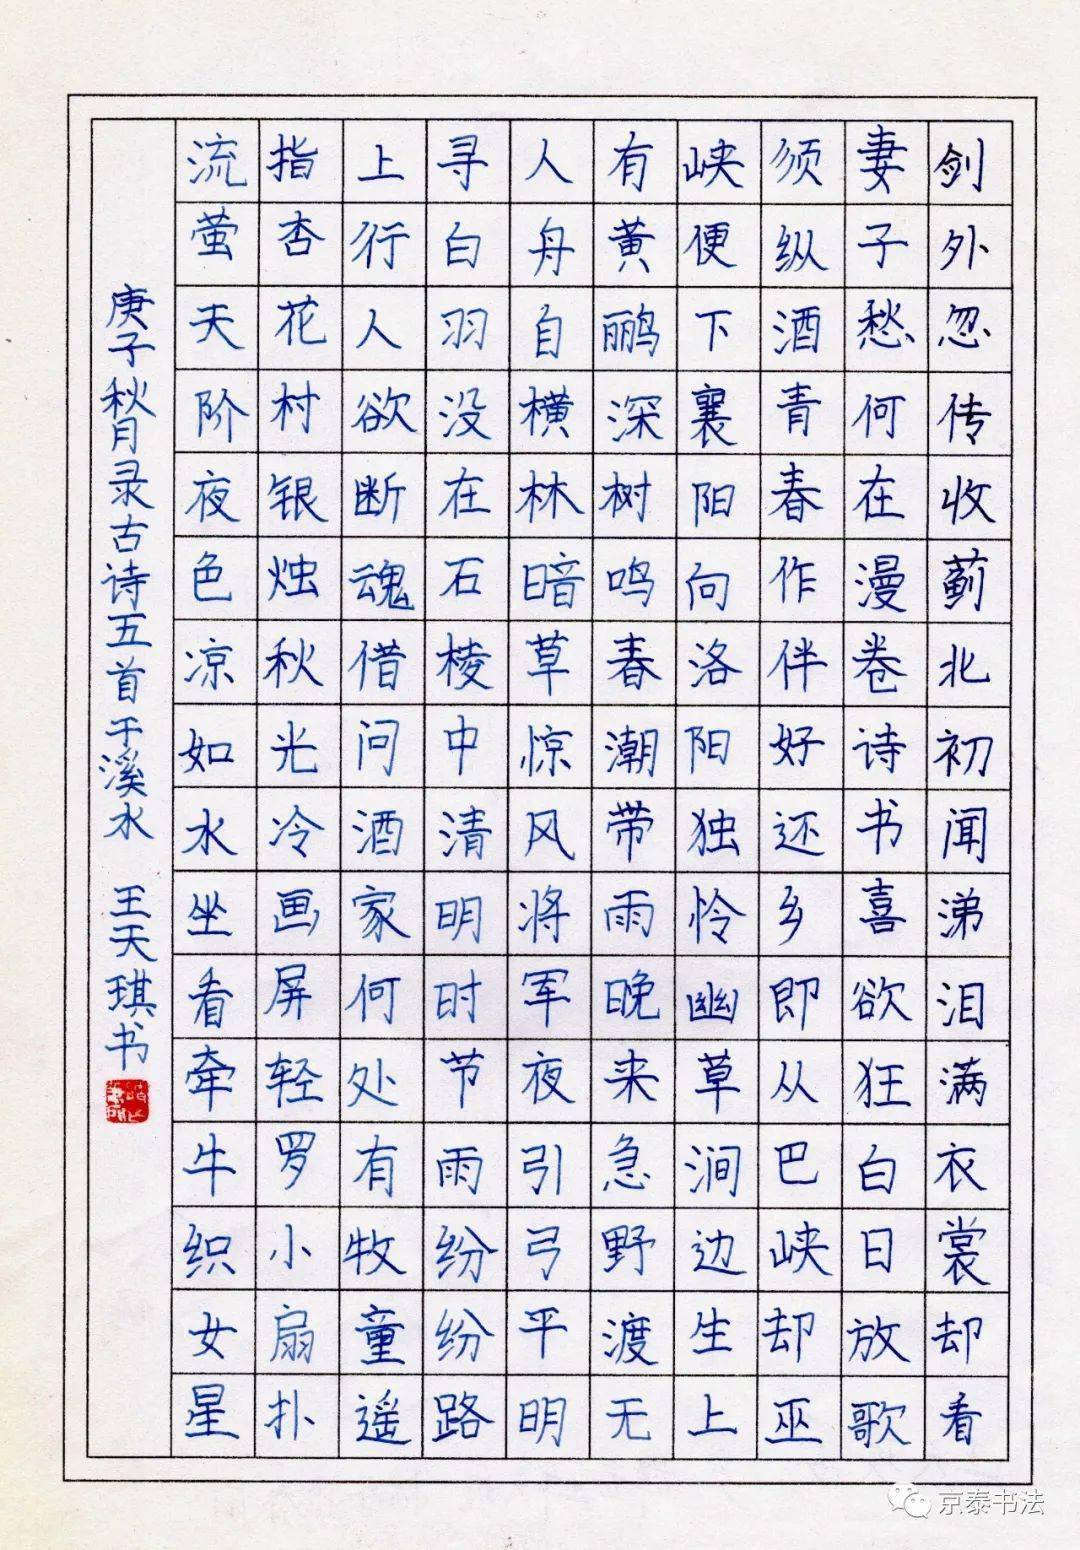 剑外忽传收蓟北初闻涕泪满衣裳却看
妻子愁何在漫卷诗书喜欲狂白日放歌
须纵酒青春作伴好还乡即从巴峡却巫
峡便下襄阳向洛阳独怜幽草涧边生上
有黄鹂深树鸣春潮带雨晚来急野渡无
人舟自横林暗草惊风将军夜引弓平明
寻白羽没在石棱中清明时节雨纷纷路
上行人欲断魂借问酒家何处有牧童遥
指杏花村银烛秋光冷画屏轻罗小扇扑
流萤天阶夜色凉如水坐看牵牛织女星
庚子秋月录古诗五首于溪水 王天琪书
京泰书法